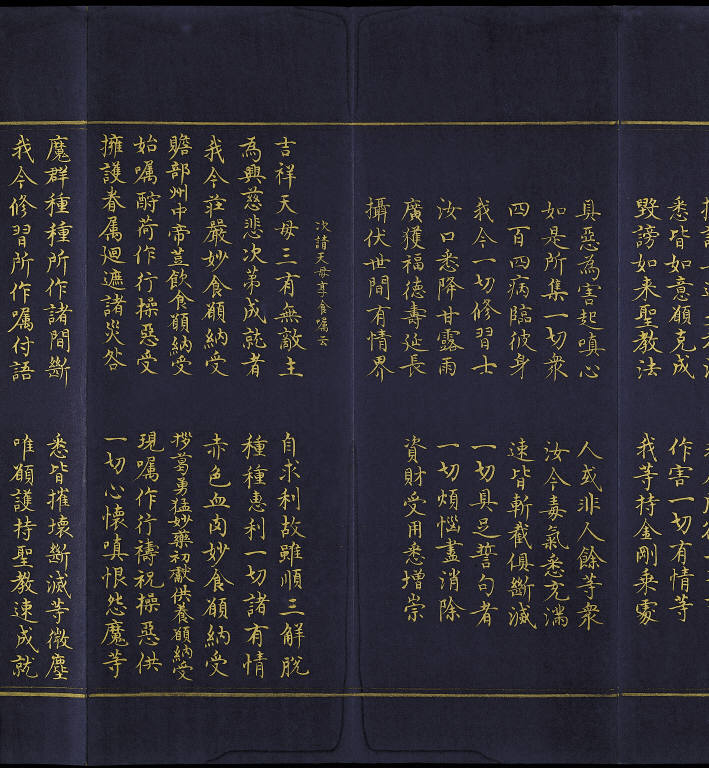 悉皆如意願克成　作害一切有情等
毀謗如来聖教法　我等持金剛乘處
具惡為害起嗔心　人或非人餘等衆
如是所集一切衆　汝今毒氣悉充滿
四百四病臨彼身　速皆斬截俱斷滅
我今一切修習士　一切具足誓句者
汝口悉降甘露雨　一切煩惱盡消除
廣獲福德壽延長　資財受用悉增崇
攝伏世間有情界
次請天母享食嘱云
吉祥天母三有無敵主　自求利故雖順三解脱
為興慈悲次第成就者　種種惠利一切諸有情
我今莊嚴妙食願納受　赤色血肉妙食願納受
贍部州中帝豈飲食願納受　拶葛勇猛妙藥初獻供養願納受
始嘱酧荷作行操惡受　現嘱作行禱祝操惡供
擁護眷属迴遮諸災咎　一切心懷嗔恨怨魔等
魔群種種所作諸間斷　悉皆摧壞斷滅等微塵
我今修習所作嘱付語　唯願護持聖教速成就